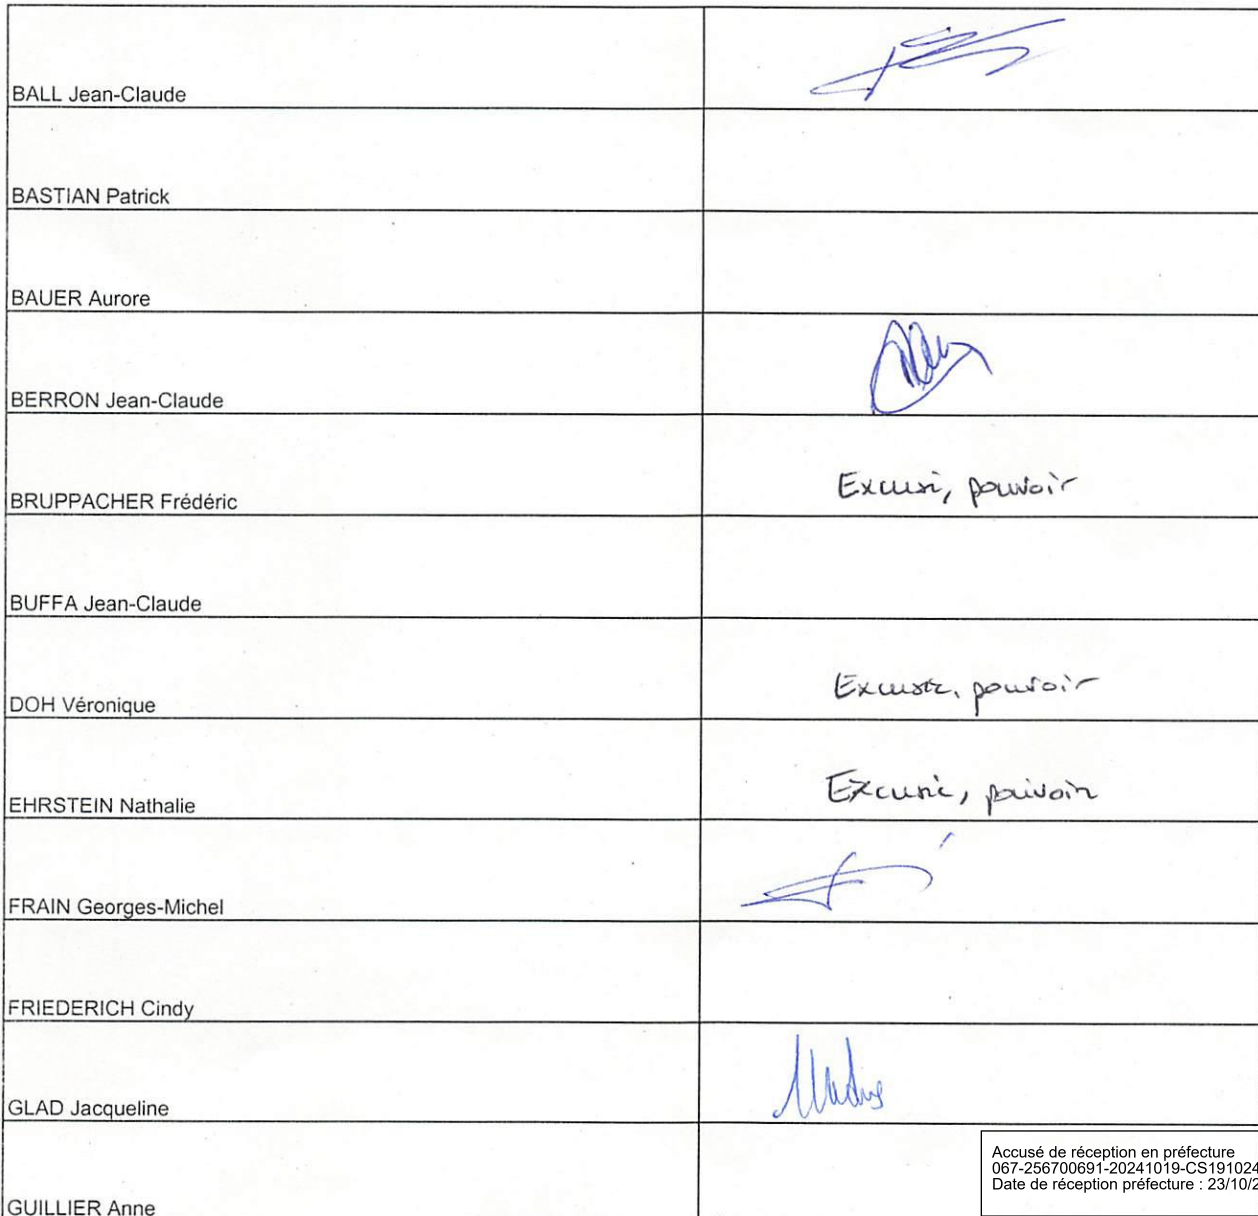 BALL Jean-Claude
BASTIAN Patrick
BAUER Aurore
BERRON Jean-Claude
BRUPPACHER Frédéric
Excusé, pouvoir
BUFFA Jean-Claude
DOH Véronique
Excusée, pouvoir
EHRSTEIN Nathalie
Excusée, pouvoir
FRAIN Georges-Michel
FRIEDERICH Cindy
GLAD Jacqueline
GUILLIER Anne
Accusé de réception en préfecture
067-256700691-20241019-CS191024
Date de réception préfecture : 23/10/2